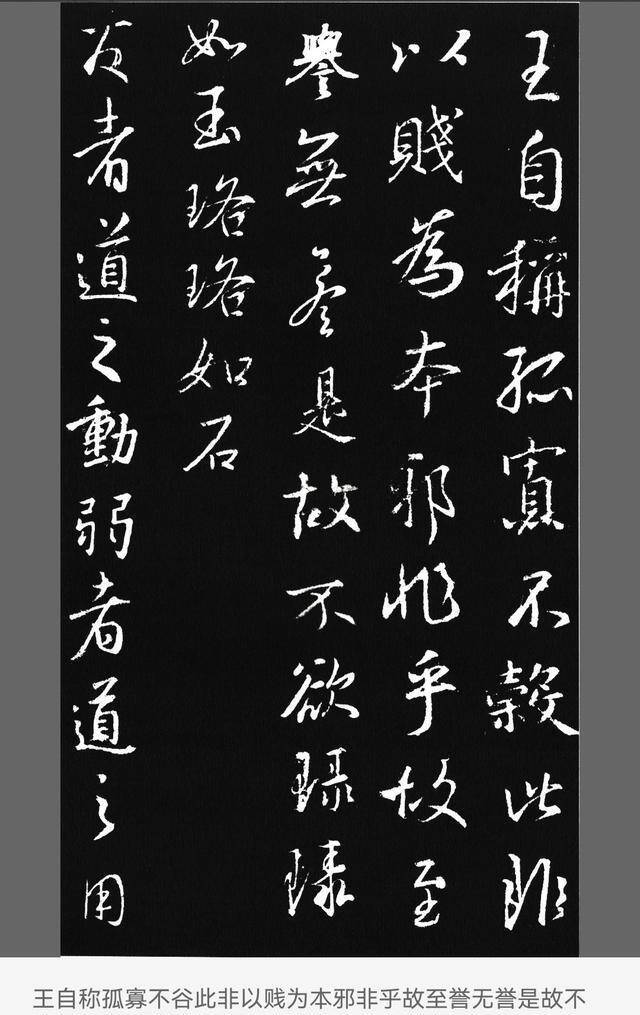 王自稱孤寡不穀此非
以賤為本邪非乎故至
譽無譽是故不欲琭琭
如玉珞珞如石
反者道之動弱者道之用
王自称孤寡不谷此非以贱为本邪非乎故至誉无誉是故不